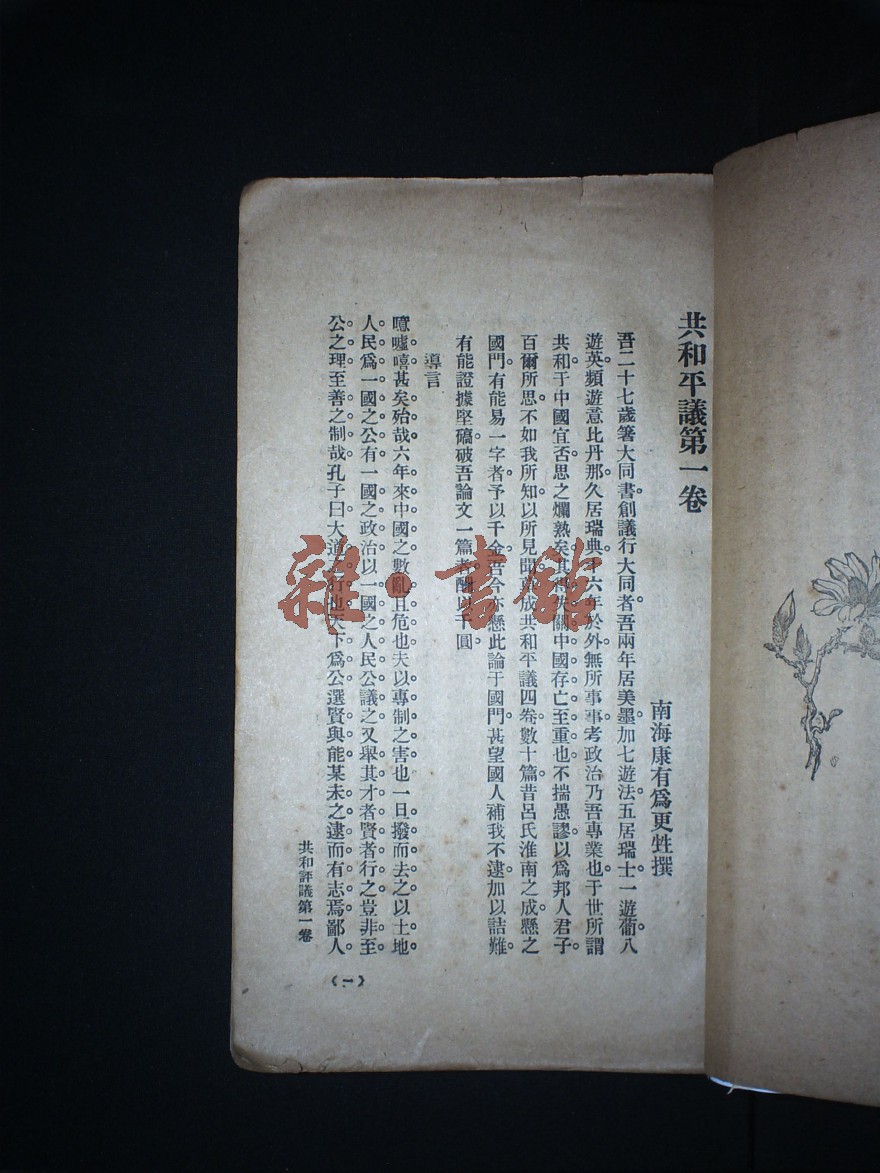 共和平議第一卷
南海康有爲更甡撰
吾二十七歲箸大同書創議行大同者吾兩年居美墨加七遊法五居瑞士一遊葡八
遊英頻遊意比丹那久居瑞典十六年於外無所事事考政治乃吾專業也于世所謂
共和于中國宜否思之爛熟矣其得失關中國存亡至重也不揣愚謬以爲邦人君子
百爾所思不如我所知以所見聞成共和平議四卷數十篇昔呂氏淮南之成懸之
國門有能易一字者予以千金吾今亦懸此論于國門甚望國人補我不逮加以詰難
有能證據堅礭破吾論文一篇者酬以千圓
導言
噫嘘嘻甚矣殆哉六年來中國之數亂且危也夫以專制之害也一旦撥而去之以土地
人民爲一國之公有一國之政治以一國之人民公議之又舉其才者賢者行之豈非至
公之理至善之制哉孔子曰大道之行也天下爲公選賢與能某未之逮而有志焉鄙人
共和評議第一卷
(一)
雜·書館